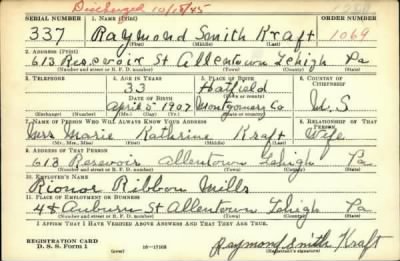 Discharged 10/15/45
SERIAL NUMBER 1. NAME (Print) ORDER NUMBER
337 Raymond Smith Kraft 1069
(First) (Middle) (Last)
2. ADDRESS (Print)
613 Reservoir St Allentown Lehigh Pa
(Number and street or R. F. D. number) (Town) (County) (State)
3. TELEPHONE 4. AGE IN YEARS 5. PLACE OF BIRTH 6. COUNTRY OF CITIZENSHIP
33 Hatfield
DATE OF BIRTH (Town or county)
April 5 1907 Montgomery Co U.S
(Exchange) (Number) (Mo.) (Day) (Yr.) (State or country)
7. NAME OF PERSON WHO WILL ALWAYS KNOW YOUR ADDRESS 8. RELATIONSHIP OF THAT PERSON
Mrs Marie Kathrine Kraft Wife
(Mr., Mrs., Miss) (First) (Middle) (Last)
9. ADDRESS OF THAT PERSON
613 Resevoir Allentown Lehigh Pa
(Number and street or R. F. D. number) (Town) (County) (State)
10. EMPLOYER'S NAME
Rionor Ribbon Mills
11. PLACE OF EMPLOYMENT OR BUSINESS
4th Auburn St Allentown Lehigh Pa
(Number and street or R. F. D. number) (Town) (County) (State)
I AFFIRM THAT I HAVE VERIFIED ABOVE ANSWERS AND THAT THEY ARE TRUE.
REGISTRATION CARD
D. S. S. Form 1 (over) 16—17105 Raymond Smith Kraft
(Registrant's signature)